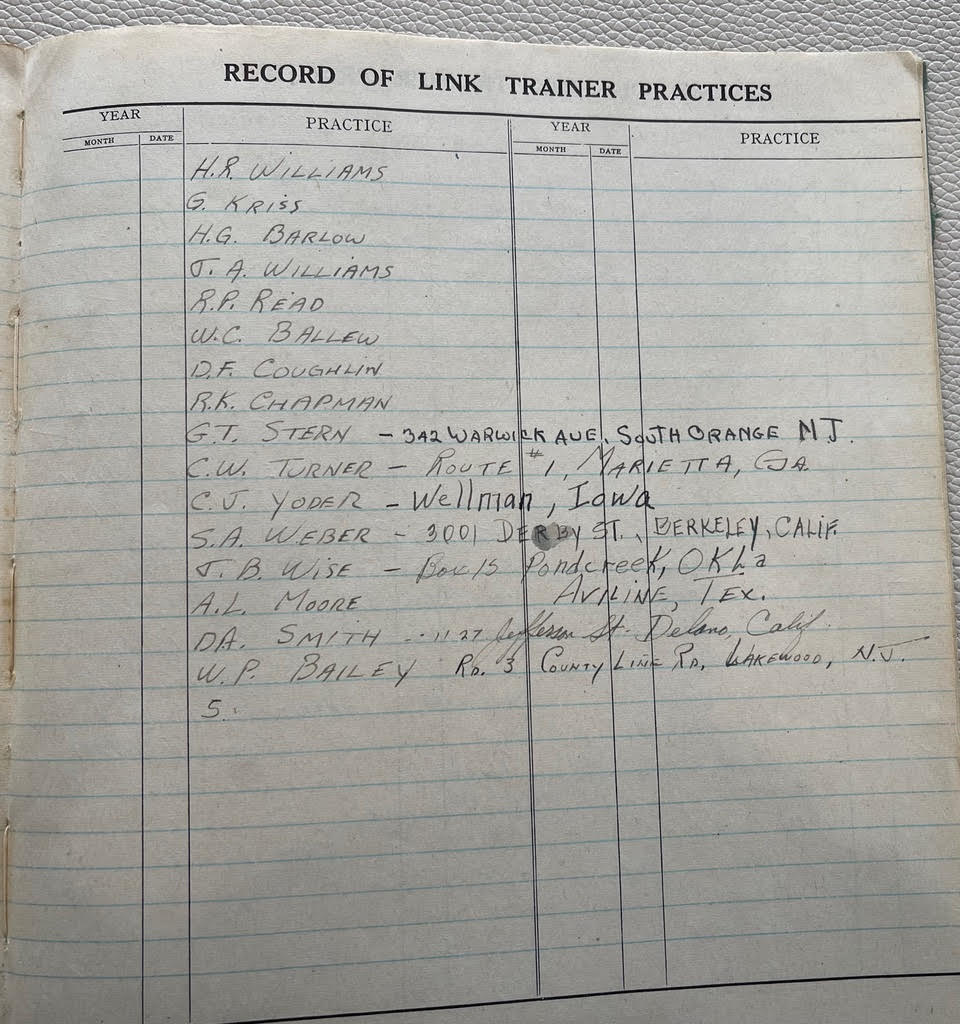 RECORD OF LINK TRAINER PRACTICES
YEAR PRACTICE YEAR PRACTICE
MONTH DATE MONTH DATE
H.R. WILLIAMS
G. KRISS
H.G. BARLOW
J. A. WILLIAMS
R.P. READ
W.C. BALLEW
D.F. COUGHLIN
R.K. CHAPMAN
G.T. STERN – 342 WARWICK AVE, SOUTH ORANGE N J.
C.W. TURNER – ROUTE #1, MARIETTA, GA
C.J. YODER – Wellman, Iowa
S.A. WEBER – 3001 DERBY ST., BERKELEY, CALIF.
J. B. WISE – Box 15 Pondcreek, OKLa
A.L. MOORE AVILINE, TEX.
D.A. SMITH – 1127 Jefferson St. Delano, Calif.
W.P. BAILEY RD. 3 COUNTY LINE RD, LAKEWOOD, N.J.
S.